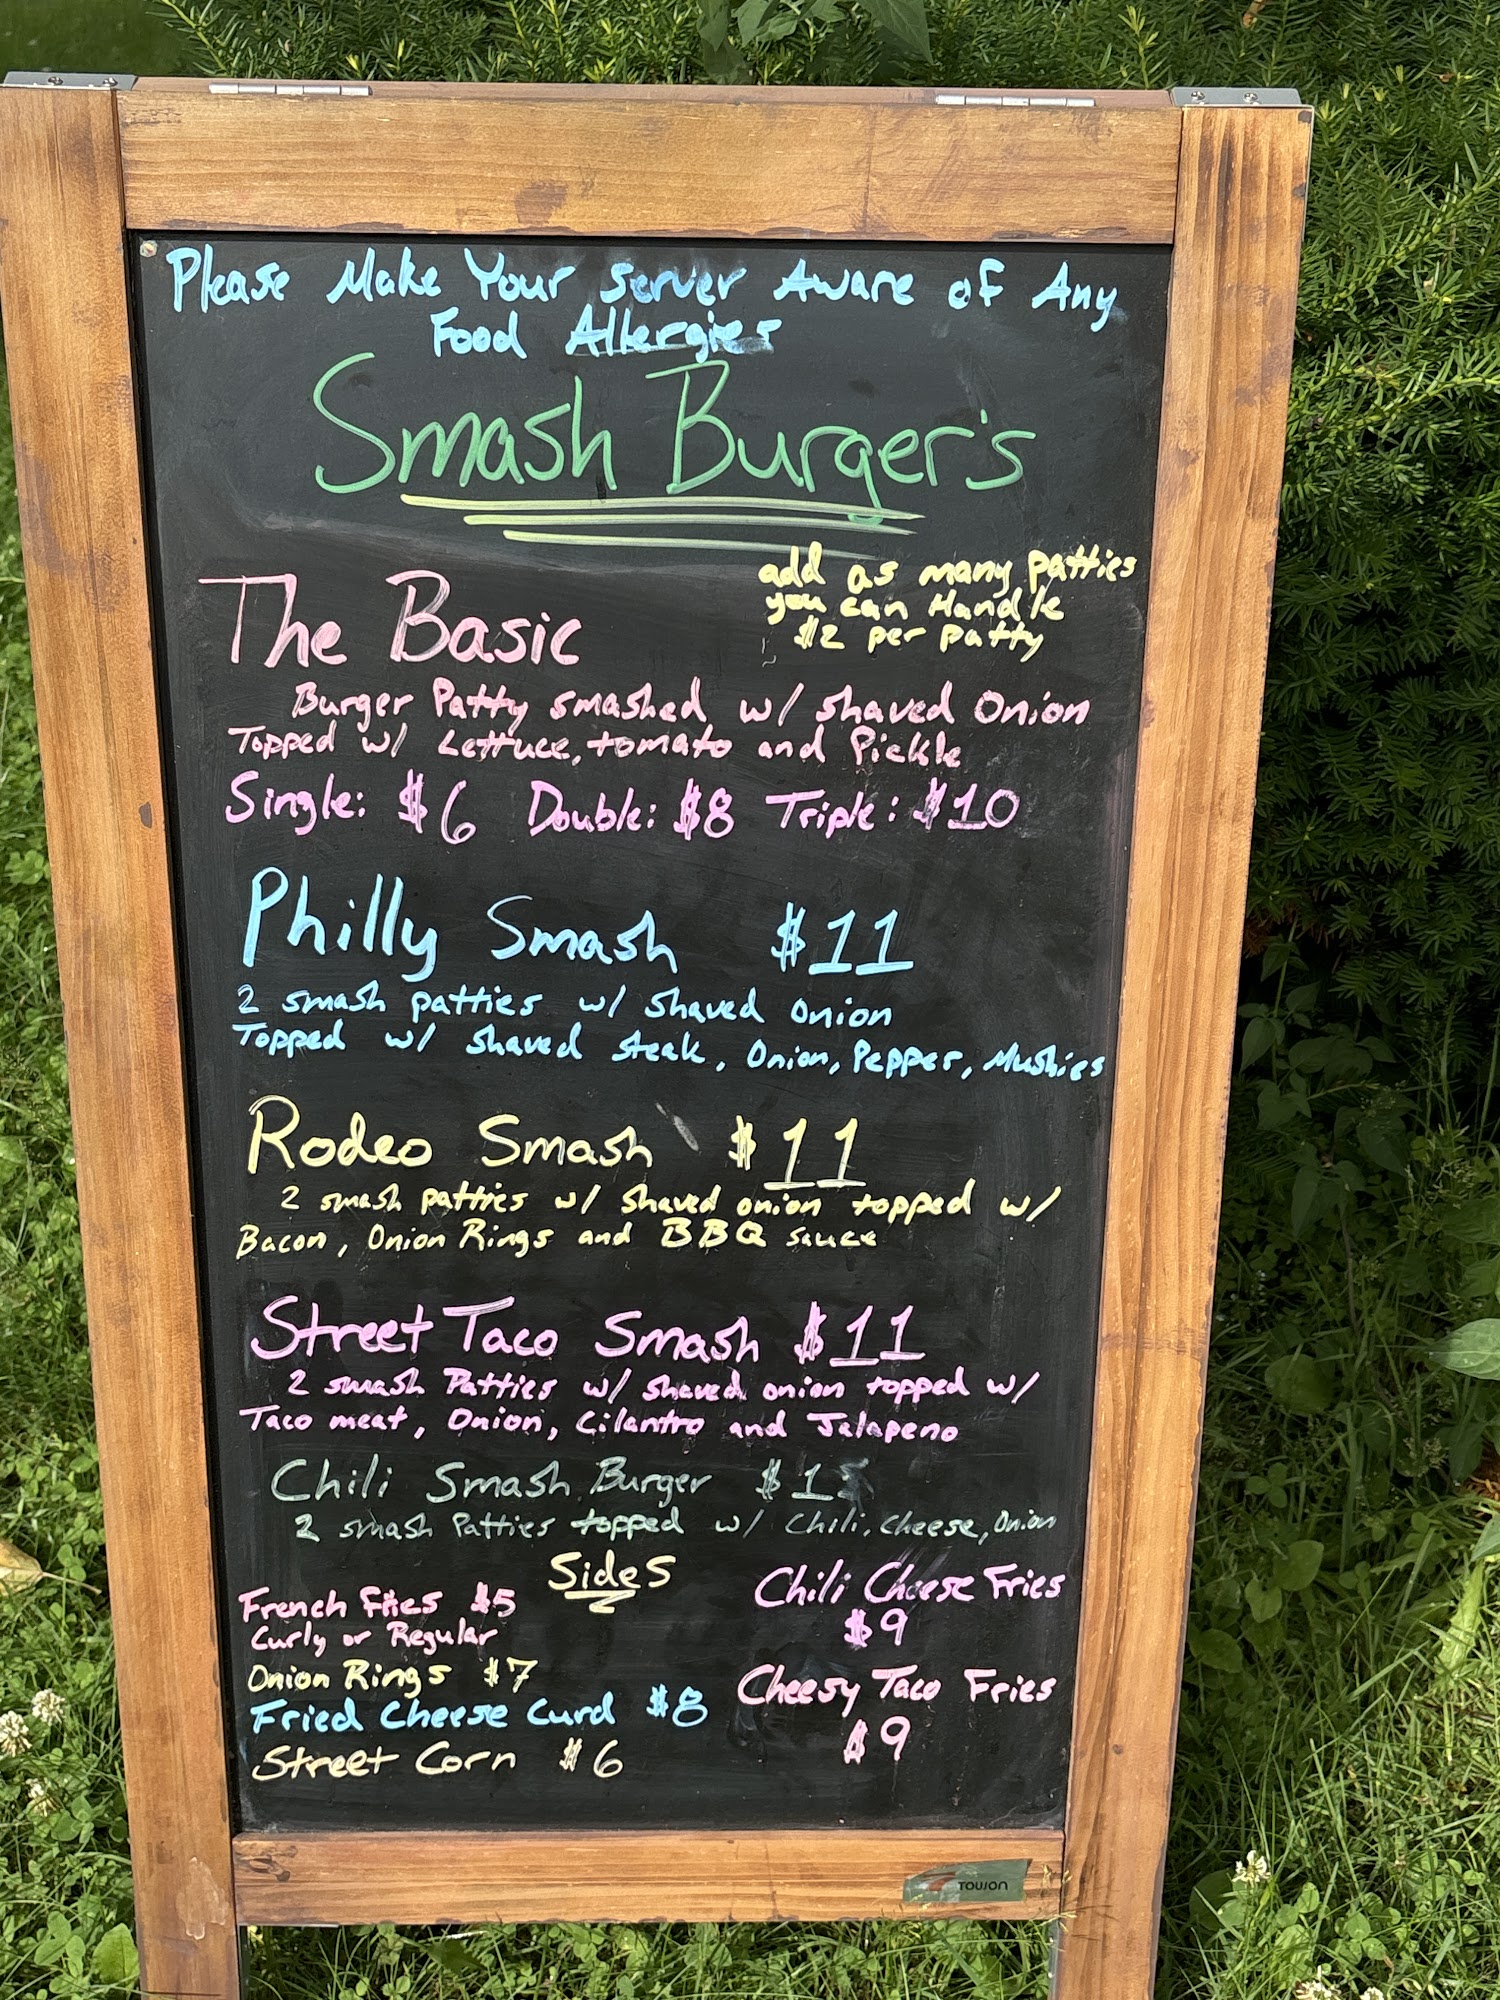 Please Make Your Server Aware of Any
Food Allergies
Smash Burger's
add as many patties
you can Handle
$2 per patty
The Basic
Burger Patty smashed w/ shaved Onion
Topped w/ Lettuce, tomato and Pickle
Single: $6 Double: $8 Triple: $10
Philly Smash $11
2 smash patties w/ shaved onion
Topped w/ shaved steak, Onion, Pepper, Mushies
Rodeo Smash $11
2 smash patties w/ shaved onion topped w/
Bacon, Onion Rings and BBQ sauce
Street Taco Smash $11
2 smash Patties w/ shaved onion topped w/
Taco meat, Onion, Cilantro and Jalapeno
Chili Smash Burger
2 smash Patties topped w/ Chili, cheese, Onion
Sides
French Fries $5
Curly or Regular
Onion Rings $7
Fried Cheese Curd $8
Street Corn $6
Chili Cheese Fries
$9
Cheesy Taco Fries
$9
TOUJON